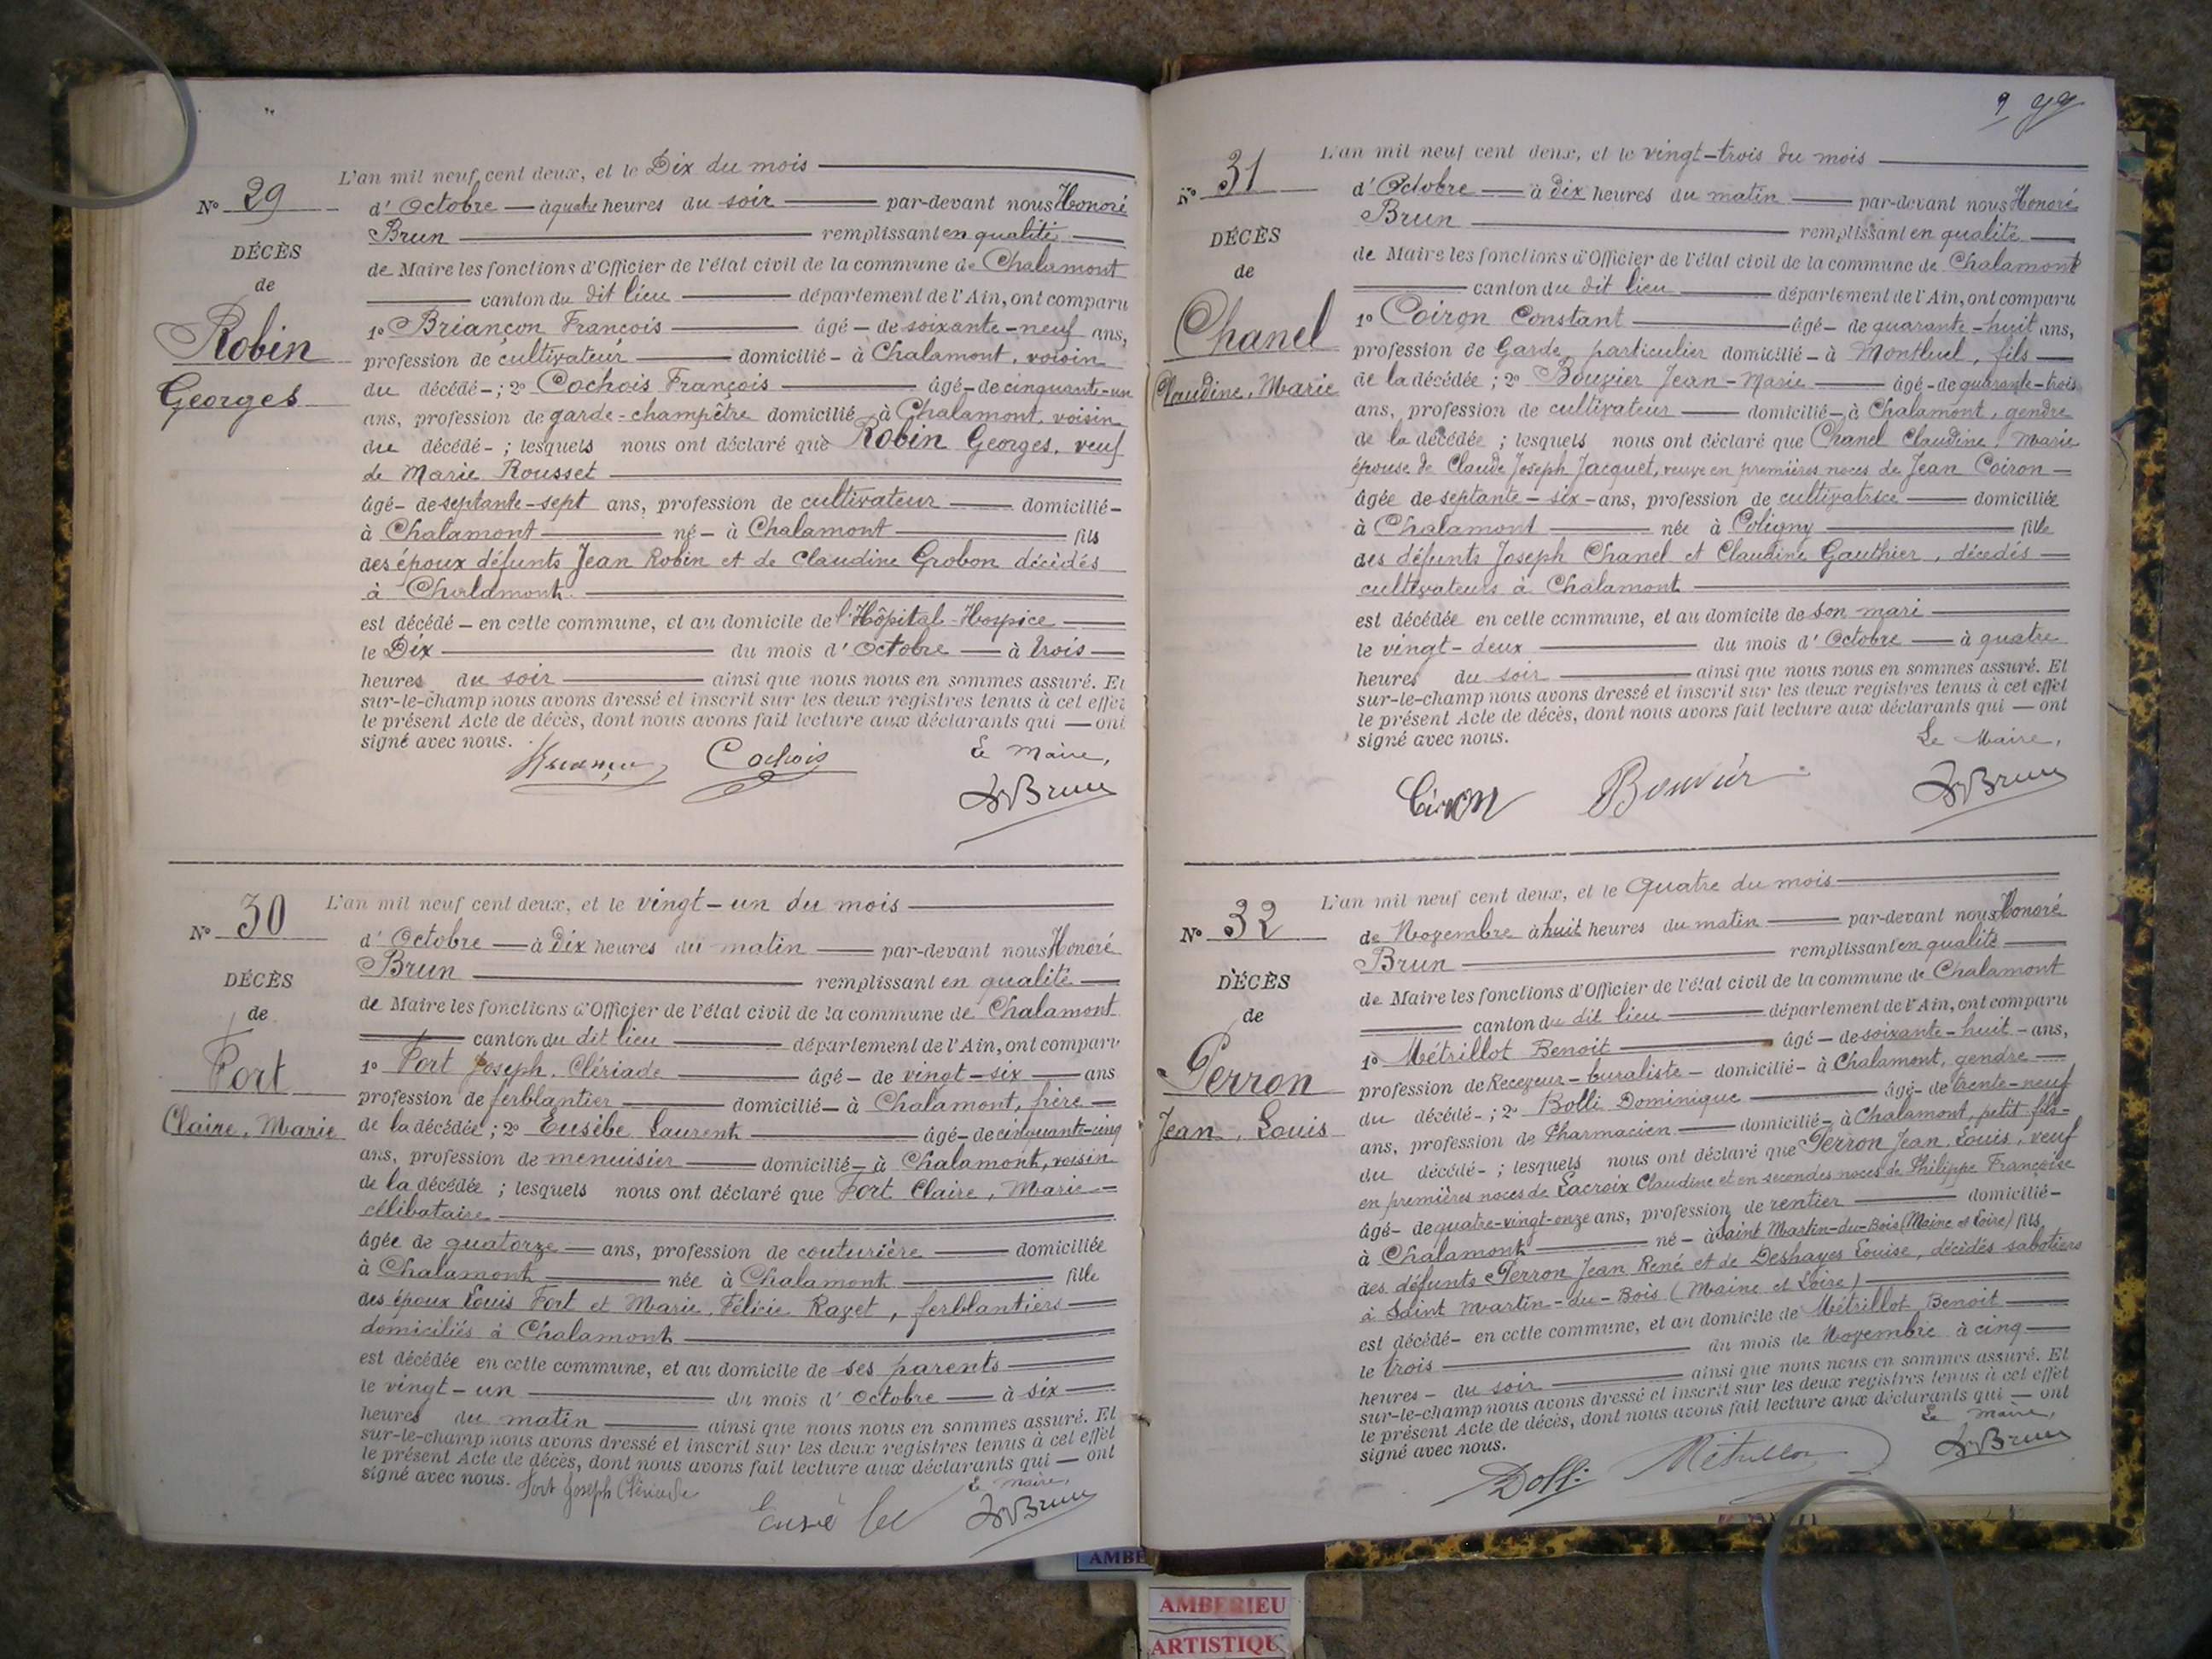 L'an mil neuf cent deux, et le Dix du mois
N° 29
d'Octobre à quatre heures du soir par-devant nous Honoré
Brun remplissant en qualité
DÉCÈS
de Maire les fonctions d'Officier de l'état civil de la commune de Chalamont
de
canton du dit lieu département de l'Ain, ont comparu
Robin
1° Briançon François âgé de soixante-neuf ans,
profession de cultivateur domicilié à Chalamont, voisin
Georges
du décédé ; 2° Cochois François âgé de cinquante-un
ans, profession de garde-champêtre domicilié à Chalamont, voisin
du décédé ; lesquels nous ont déclaré que Robin Georges, veuf
de Marie Rousset
âgé de septante-sept ans, profession de cultivateur domicilié
à Chalamont né à Chalamont fils
des époux défunts Jean Robin et de Claudine Grobon décédés
à Chalamont.
est décédé en cette commune, et au domicile de l'Hôpital-Hospice
le Dix du mois d'Octobre à trois
heures du soir ainsi que nous nous en sommes assuré. Et
sur-le-champ nous avons dressé et inscrit sur les deux registres tenus à cet effet
le présent Acte de décès, dont nous avons fait lecture aux déclarants qui ont
signé avec nous.
Cochois
Le Maire,
Brun
L'an mil neuf cent deux, et le vingt-un du mois
N° 30
d'Octobre à dix heures du matin par-devant nous Honoré
Brun remplissant en qualité
DÉCÈS
de Maire les fonctions d'Officier de l'état civil de la commune de Chalamont
de
canton du dit lieu département de l'Ain, ont comparu
Fort
1° Fort Joseph, Clériade âgé de vingt-six ans
profession de ferblantier domicilié à Chalamont, frère
Claire, Marie
de la décédée ; 2° Eusèbe Laurent âgé de cinquante-cinq
ans, profession de menuisier domicilié à Chalamont, voisin
de la décédée ; lesquels nous ont déclaré que Fort Claire, Marie
célibataire
âgée de quatorze ans, profession de couturière domiciliée
à Chalamont née à Chalamont fille
des époux Louis Fort et Marie, Félicie Rayet, ferblantiers
domiciliés à Chalamont
est décédée en cette commune, et au domicile de ses parents
le vingt-un du mois d'Octobre à six
heures du matin ainsi que nous nous en sommes assuré. Et
sur-le-champ nous avons dressé et inscrit sur les deux registres tenus à cet effet
le présent Acte de décès, dont nous avons fait lecture aux déclarants qui ont
signé avec nous.
Fort Joseph Clériade
Le Maire,
Brun
L'an mil neuf cent deux, et le vingt-trois du mois
N° 31
d'Octobre à dix heures du matin par-devant nous Honoré
Brun remplissant en qualité
DÉCÈS
de Maire les fonctions d'Officier de l'état civil de la commune de Chalamont
de
canton du dit lieu département de l'Ain, ont comparu
Chanel
1° Coiron Constant âgé de quarante-huit ans,
profession de Garde particulier domicilié à Montluel, fils
Claudine, Marie
de la décédée ; 2° Bouvier Jean-Marie âgé de quarante-trois
ans, profession de cultivateur domicilié à Chalamont, gendre
de la décédée ; lesquels nous ont déclaré que Chanel Claudine, Marie
épouse de Claude Joseph Jacquet, veuve en premières noces de Jean Coiron
âgée de septante-six ans, profession de cultivatrice domiciliée
à Chalamont née à Coligny fille
des défunts Joseph Chanel et Claudine Gauthier, décédés
cultivateurs à Chalamont
est décédée en cette commune, et au domicile de son mari
le vingt-deux du mois d'Octobre à quatre
heures du soir ainsi que nous nous en sommes assuré. Et
sur-le-champ nous avons dressé et inscrit sur les deux registres tenus à cet effet
le présent Acte de décès, dont nous avons fait lecture aux déclarants qui ont
signé avec nous.
Le Maire,
Bouvier
Brun
L'an mil neuf cent deux, et le Quatre du mois
N° 32
de Novembre à huit heures du matin par-devant nous Honoré
Brun remplissant en qualité
DÉCÈS
de Maire les fonctions d'Officier de l'état civil de la commune de Chalamont
de
canton du dit lieu département de l'Ain, ont comparu
Perron
1° Métrillot Benoit âgé de soixante-huit ans,
profession de Receveur-buraliste domicilié à Chalamont, gendre
Jean, Louis
du décédé ; 2° Bolli Dominique âgé de trente-neuf
ans, profession de Pharmacien domicilié à Chalamont, petit-fils
du décédé ; lesquels nous ont déclaré que Perron Jean, Louis, veuf
en premières noces de Lacroix Claudine et en secondes noces de Philippe Françoise
âgé de quatre-vingt-onze ans, profession de rentier domicilié
à Chalamont né à Saint Martin-du-Bois (Maine et Loire) fils
des défunts Perron Jean René et de Deshayes Louise, décédés sabotiers
à Saint Martin-du-Bois (Maine et Loire)
est décédé en cette commune, et au domicile de Métrillot Benoit
le trois du mois de Novembre à cinq
heures du soir ainsi que nous nous en sommes assuré. Et
sur-le-champ nous avons dressé et inscrit sur les deux registres tenus à cet effet
le présent Acte de décès, dont nous avons fait lecture aux déclarants qui ont
signé avec nous.
Le Maire,
Métrillot
Brun
AMBERIEU
ARTISTIQU